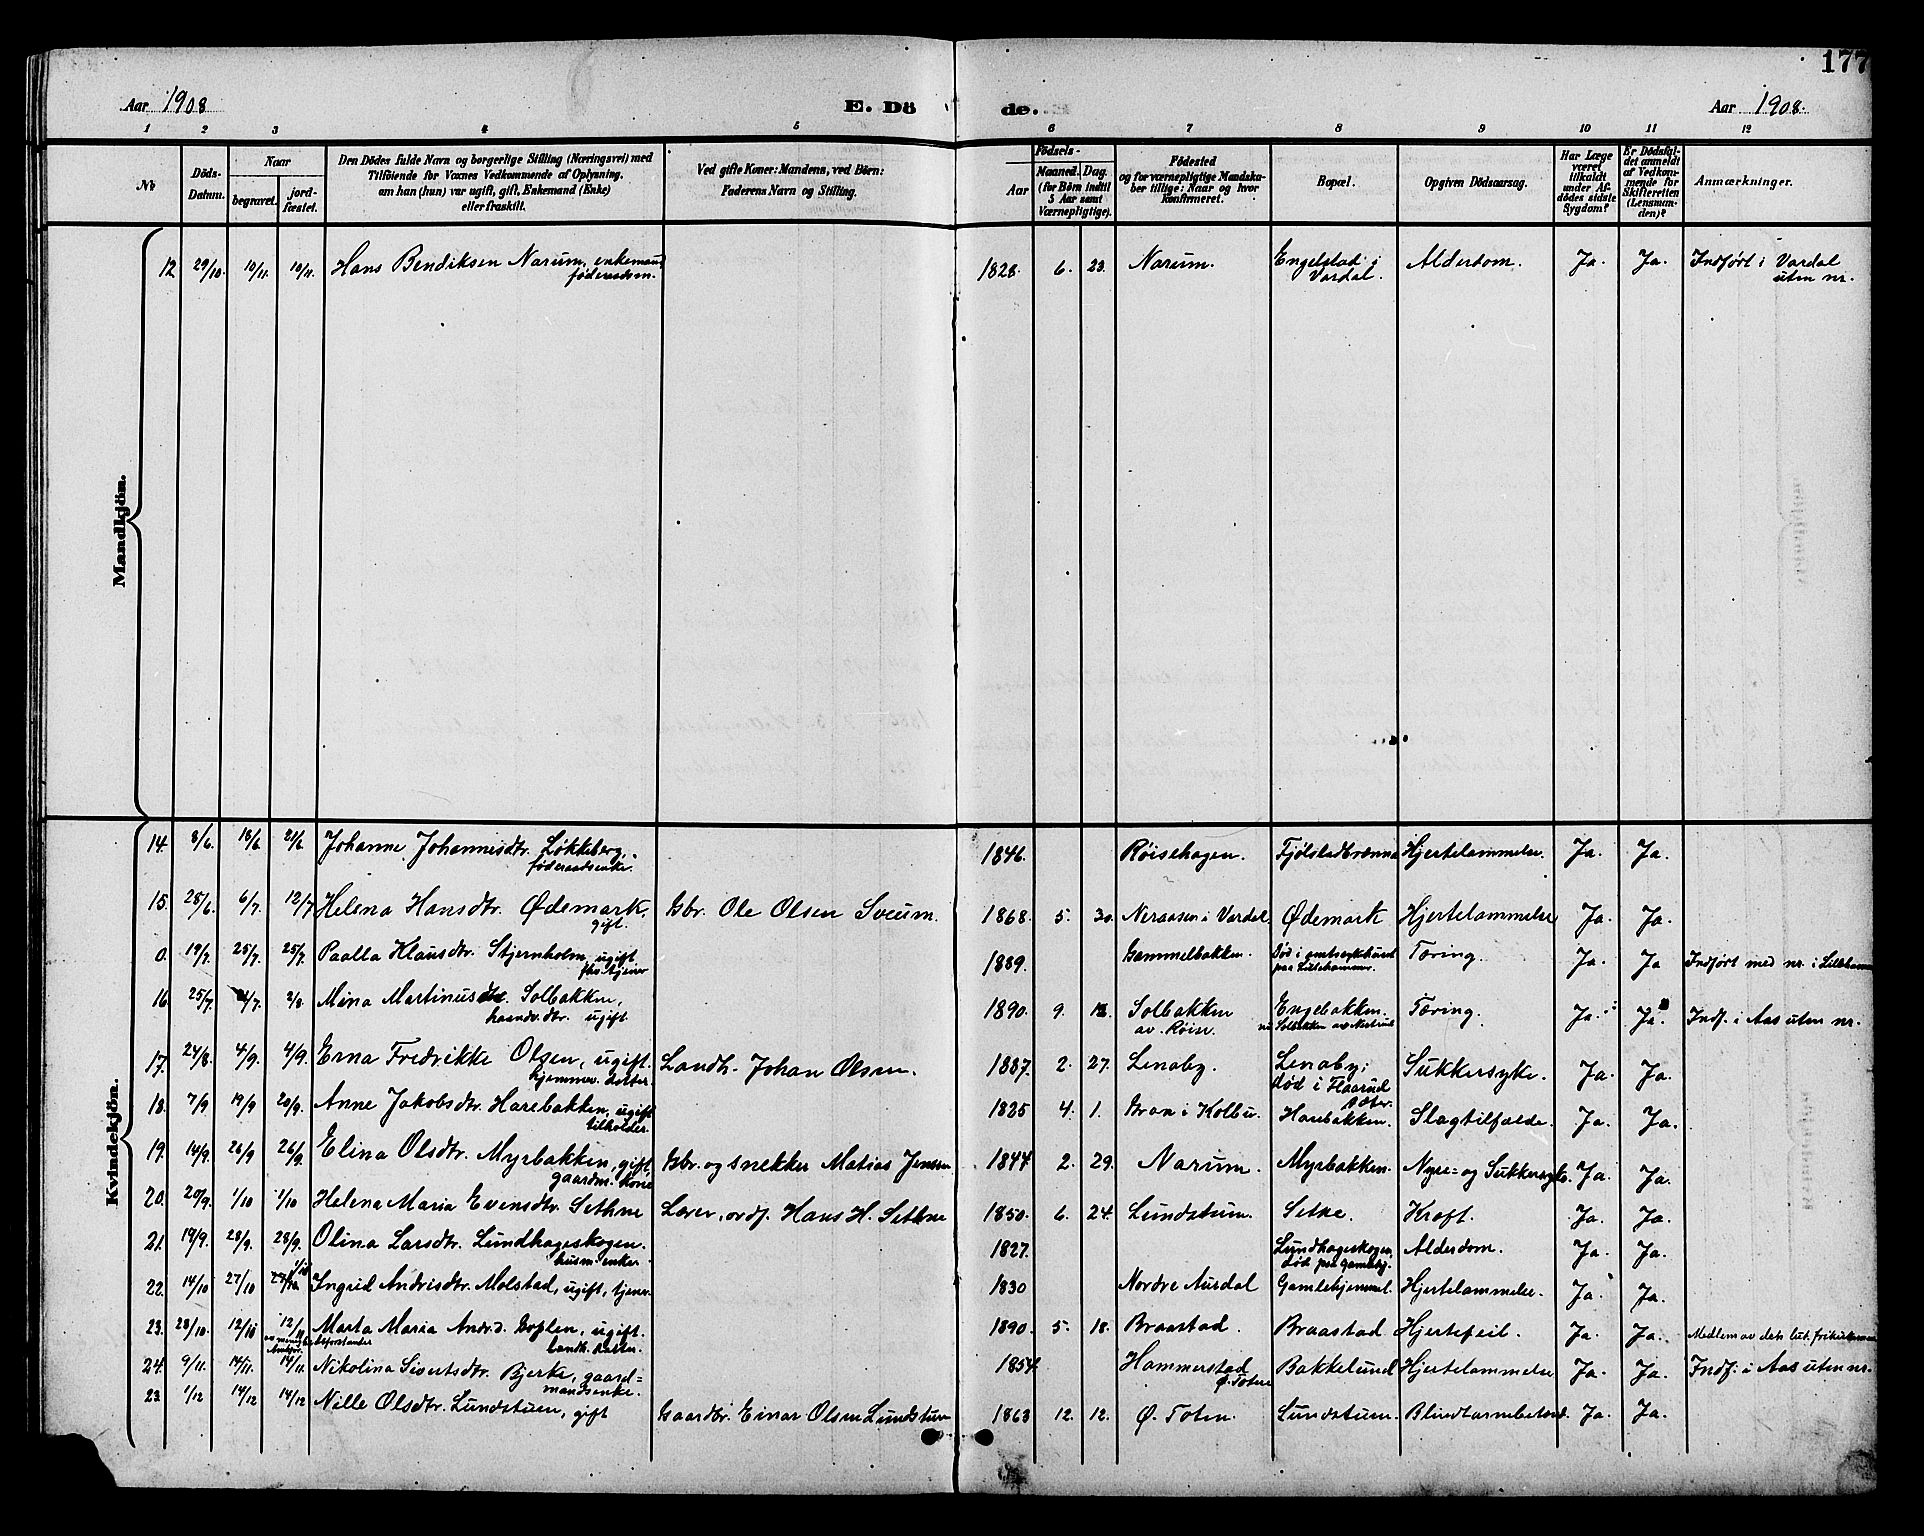 177
Aar 1908 E. Dö de. Aar 1908.
1 2 3 4 5 6 7 8 9 10 11 12
No
Döds-Datum.
Naar
begravet.
jord-fæstet.
Den Dödes fulde Navn og borgerlige Stilling (Næringsvei) med
Tilföiende for Voxnes Vedkommende af Oplysning.
om han (hun) var ugift, gift, Enkemand (Enke)
eller fraskilt.
Ved gifte Koner: Mandens, ved Börn:
Faderens Navn og Stilling.
Födsels-
Aar
Maaned. Dag.
(for Börn indtil
5 Aar samt
Værnepligtige).
Födested
og for værnepligtige Mandska-
ber tillige: Naar og hvor
konfirmeret.
Bopæl.
Opgiven Dödsaarsag.
Har Læge
været
tilkaldt
under Af-
dödes sidste
Sygdom?
Er Dödsfal-
det anmeldt
af Vedkom-
mende for
Skifteretten
(Lensman-
den)?
Anmærkninger.
Mandkjön.
12 29/10. 10/11. 10/11. Hans Bendiksen Narum, enkemand föderaadsm. 1828. 6. 23. Narum. Engelstad i Vardal. Alderdom. Ja. Ja. Indført i Vardal uten nr.
Kvindekjön.
14. 8/6. 18/6 21/6 Johanne Johannesdtr. Løkkeberg, föderaadsenke. 1846. Røisehagen. Fjölstadbrænna Hjertelammelse. Ja. Ja.
15. 28/6. 6/7. 12/7 Helena Hansdtr. Ødemark, gift. Gbr. Ole Olsen Sveum. 1868. 5. 30. Neraasen i Vardal. Ødemark Hjertelammelse Ja. Ja.
0. 19/7. 25/7. 25/7. Paalla Klausdtr. Stjernholm, ugift fhv. tjener 1889. Gammelbakken. Död i amtssykehuset paa Lillehammer. Tæring. Ja. Ja Indført med nr. i Lilleham
16 25/7. /7. 2/8. Mina Martinusdtr. Solbakken, haandv. dtr. ugift. 1890. 9. Solbakken av Røise. Engebakken. Solbakken av Tæring. Ja. Ja. Indf. i Aas uten nr.
17. 24/8. 4/9. 4/9. Erna Fredrikke Olsen, ugift. hjemmev. datter. Landh. Johan Olsen. 1887. 2. 27. Lenaby. Lenaby; död i Flaarud sæter. Sukkersyke. Ja. Ja.
18. 7/9 19/9 20/9. Anne Jakobsdtr. Harebakken, ugift tilholder. 1825 4. 1. Gran i Kolbu. Harebakken. Slagtilfælde. Ja. Ja.
19. 14/9. 26/9 26/9. Elina Olsdtr. Myrbakken, gift, gaardm. kone Gbr. og snekker Matias Jensen 1844 2. 29. Narum. Myrbakken. Nyre- og Sukkersyke. Ja. Ja.
20. 20/9. 1/10 1/10 Helena Maria Evensdtr. Sethne Lærer, ordf. Hans H. Sethne 1850. 6. 24. Lundstuen. Setne. Kræft. Ja. Ja.
21. 19/9. 28/9. 28/9. Olina Larsdtr. Lundhageskogen. husm. enke. 1827. Lundhageskogen, död paa gamleh. Alderdom. Ja. Ja.
22. 14/10 27/10 Ingrid Andrisdtr. Molstad, ugift, tjener. 1830 Nordre Aurdal Gamlehjemmet. Hjertelammelse. Ja. Ja.
23. 28/10. 12/11 12/11 Marta Maria Andr.d. Goplen, ugift. landh. datter. 1890. 5. 18. Braastad. Braastad. Hjertefeil. Ja. Ja. Medlem av den lut. frikirke
24. 9/11. 14/11. 14/11. Nikolina Sivertsdtr. Bjerke, gaard=mandsenke. 1854. Hammerstad Ø. Toten Bakkelund Hjertelammelse Ja. Ja. Indf. i Aas uten nr.
23. 1/12 14/12 14/12 Nille Olsdtr. Lundstuen, gift Gaardbr. Einar Olsen Lundstuen 1863 12. 12. Ø. Toten. Lundstuen. Blindtarmbetænd. Ja. Ja.